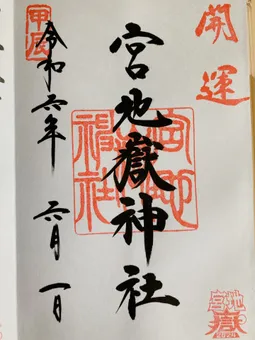 開運
宮地嶽神社
宮地
嶽神
社
甲辰
令和六年 六月 一日
宮地
嶽
2024